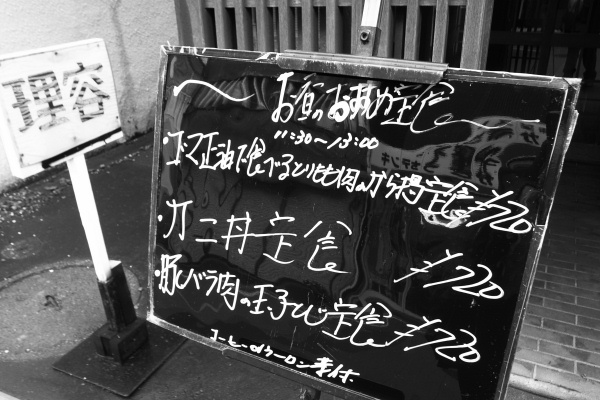 理容
お昼のおすすめ定食
11:30~13:00
・ゴマ正油で食べるとりもも肉のから揚定食 ¥720
・カニ丼定食 ¥720
・豚バラ肉の玉子とじ定食 ¥720
コーヒーorウーロン茶付